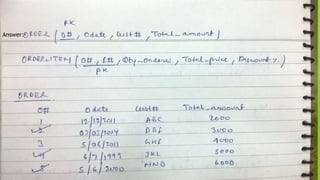 PK
Answer: ORDER ( O# , Odate , Cust# , Total_amount )
ORDER_ITEM ( O# , I# , Qty_ordered , Total_price , Discount % )
PK
ORDER
O# Odate Cust# Total_amount
1 12/12/2011 ABC 2000
2 07/03/2014 DEF 3000
3 5/06/2011 GHI 4000
4 6/7/1999 JKL 5000
5 5/6/2000 MNO 6000